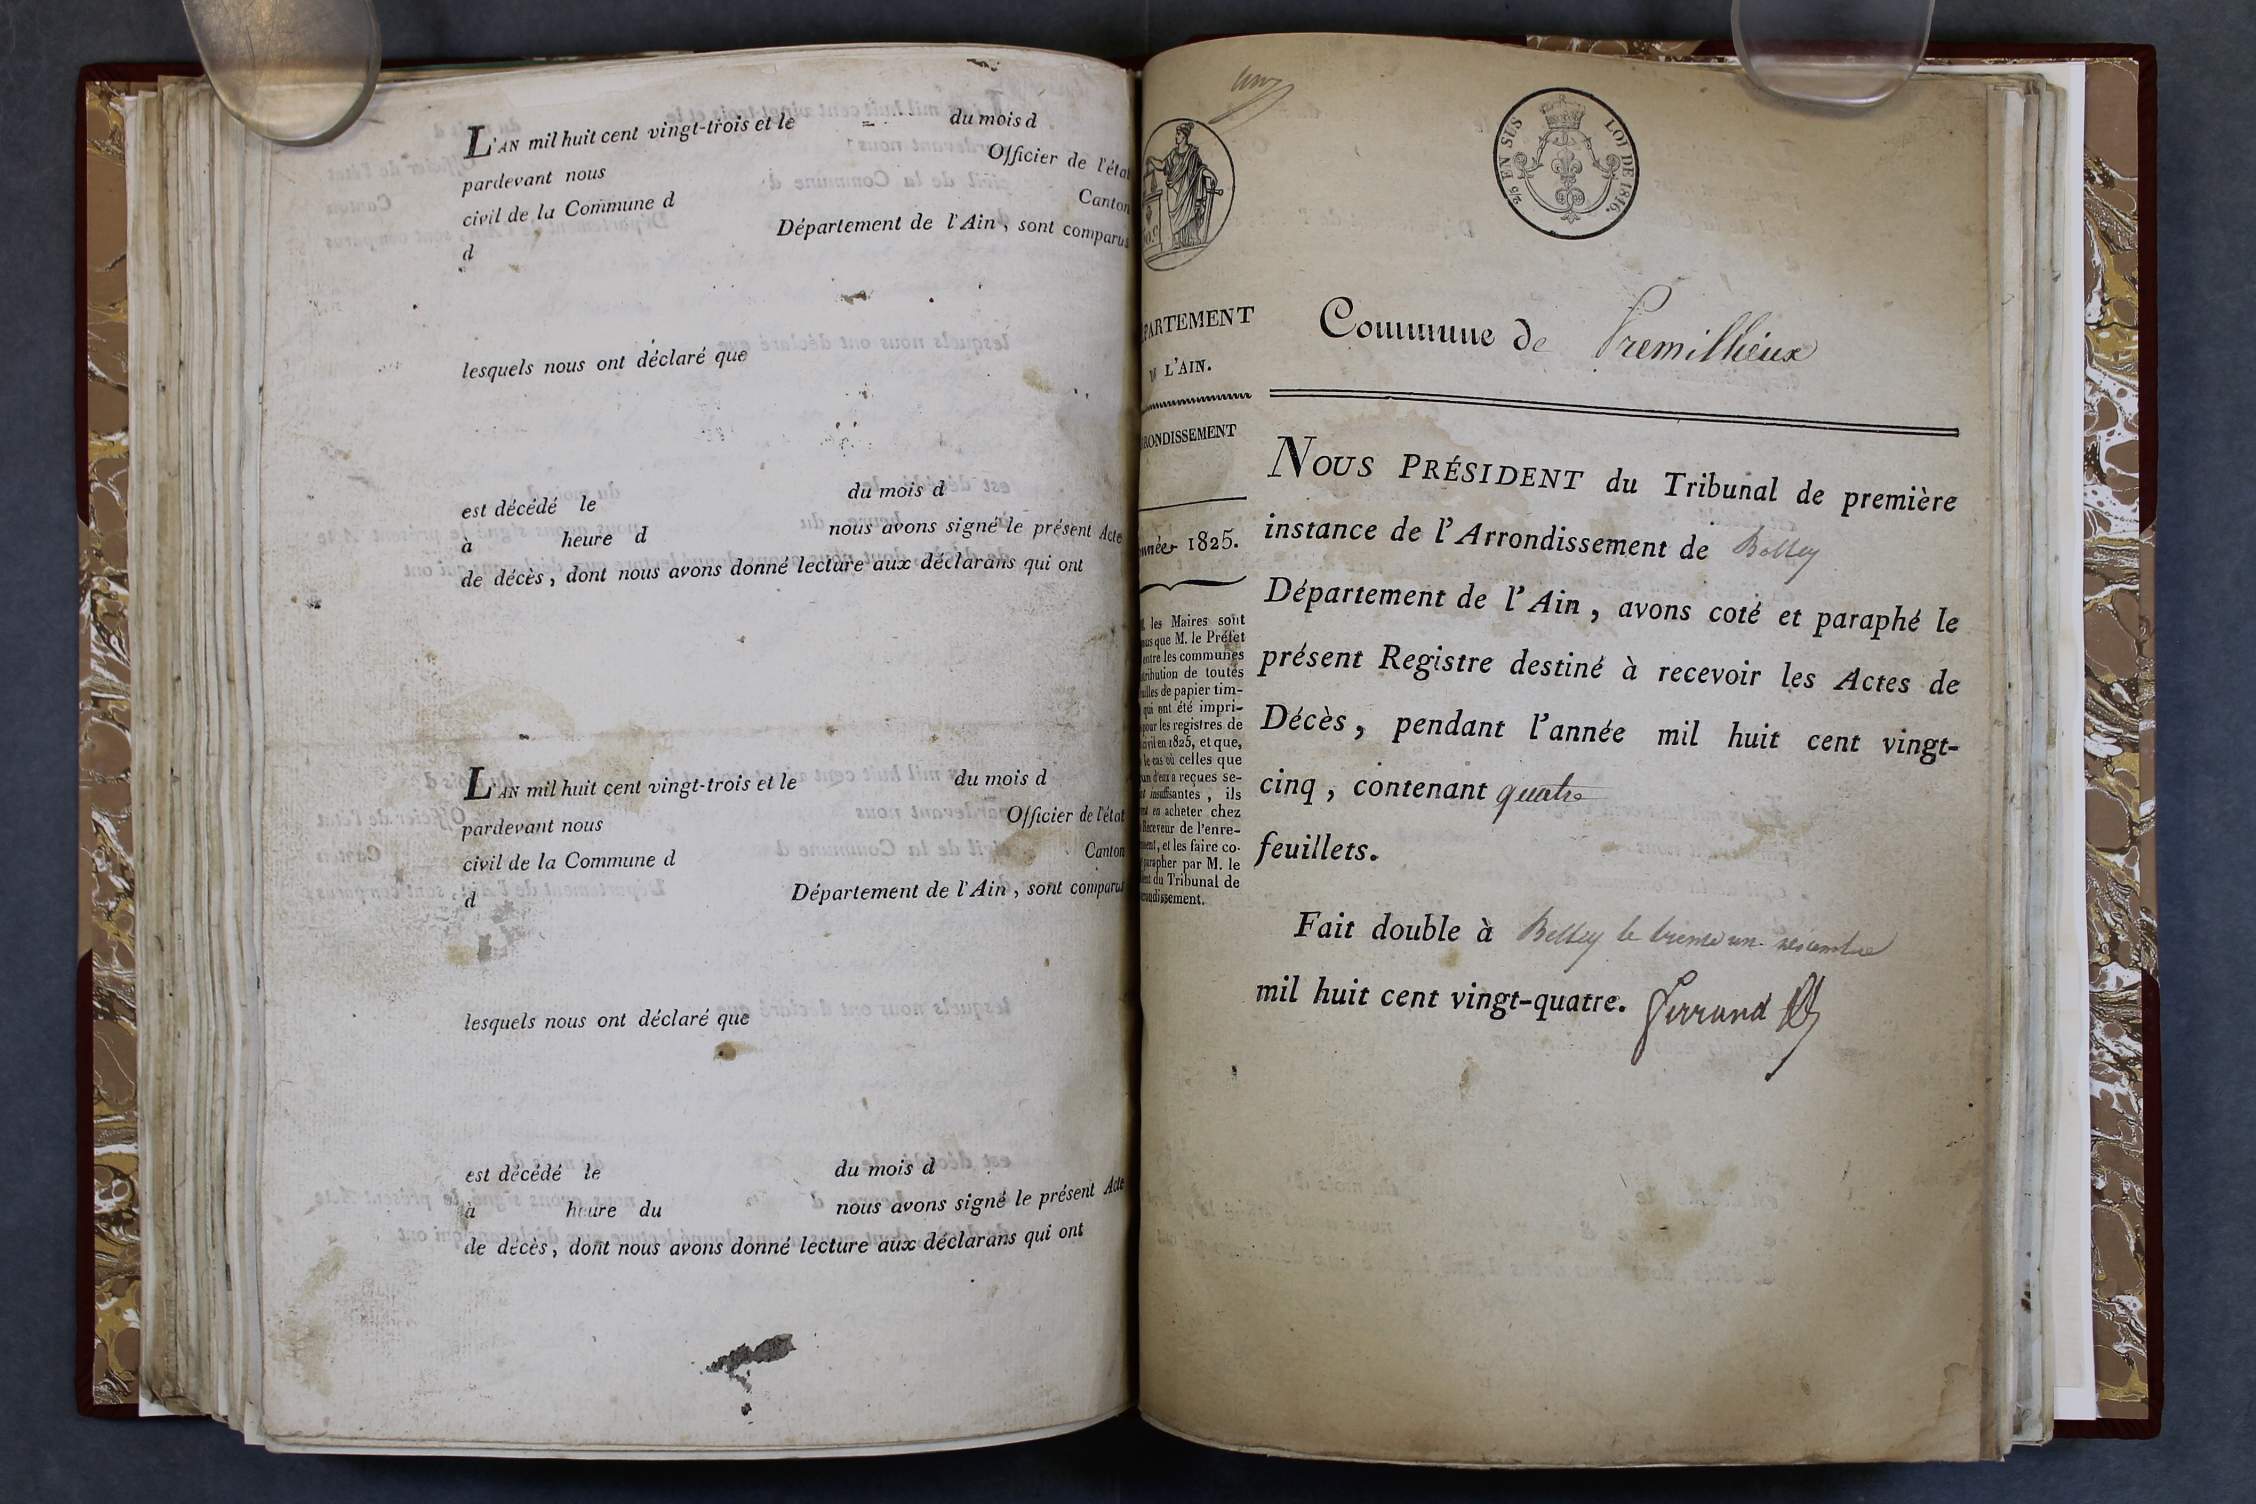 L'AN mil huit cent vingt-trois et le = du mois d
pardevant nous Officier de l'état
civil de la Commune d Canton
d Département de l'Ain, sont comparus
lesquels nous ont déclaré que
est décédé le du mois d
à heure d nous avons signé le présent Acte
de décès, dont nous avons donné lecture aux déclarans qui ont
L'AN mil huit cent vingt-trois et le du mois d
pardevant nous Officier de l'état
civil de la Commune d Canton
d Département de l'Ain, sont comparus
lesquels nous ont déclaré que
est décédé le du mois d
à heure du nous avons signé le présent Acte
de décès, dont nous avons donné lecture aux déclarans qui ont
2/5 EN SUS LOI DE 1816.
PARTEMENT
L'AIN.
RONDISSEMENT
nnée 1825.
les Maires sont
que M. le Préfet
entre les communes
tribution de toutes
uilles de papier tim-
qui ont été impri-
pour les registres de
civil en 1825, et que,
le cas où celles que
un d'eux a reçues se-
insuffisantes, ils
en acheter chez
Receveur de l'enre-
ment, et les faire co-
parapher par M. le
ent du Tribunal de
rondissement.
Commune de Premillieux
NOUS PRÉSIDENT du Tribunal de première
instance de l'Arrondissement de Belley
Département de l'Ain, avons coté et paraphé le
présent Registre destiné à recevoir les Actes de
Décès, pendant l'année mil huit cent vingt-
cinq, contenant quatre
feuillets.
Fait double à Belley le trente un
mil huit cent vingt-quatre. Ferrand